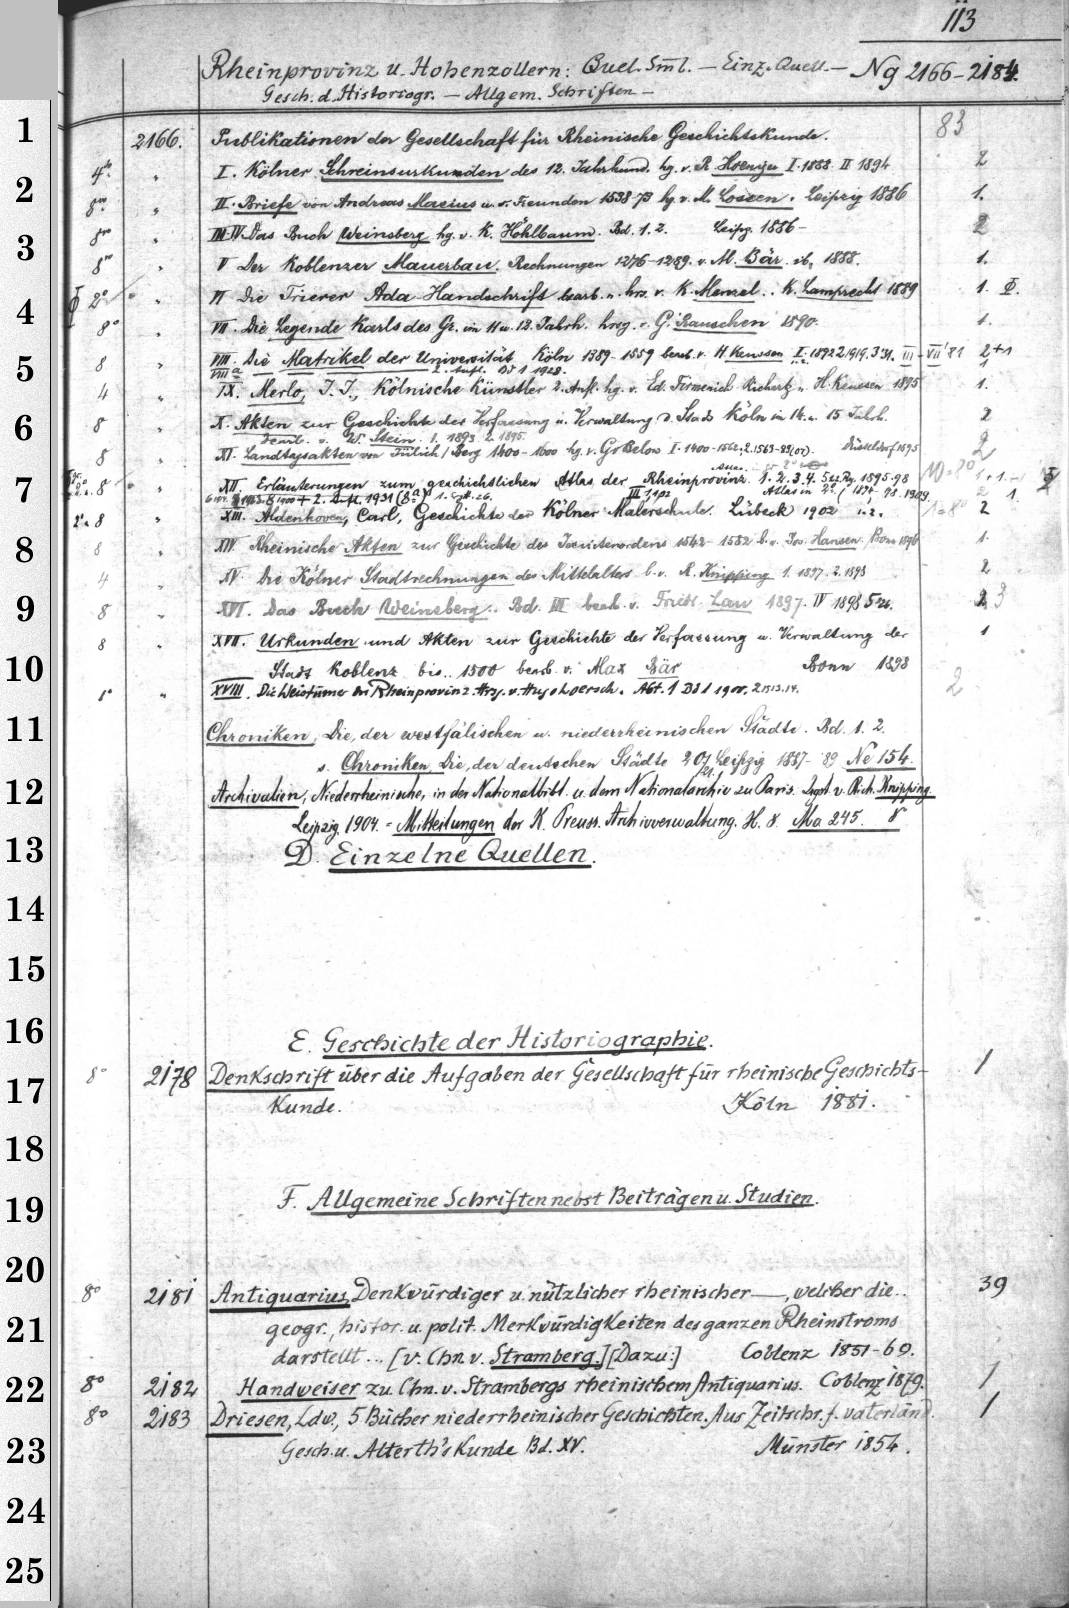 113
Rheinprovinz u. Hohenzollern: Quel. Sml. — Einz. Quell. — Ng 2166-2184.
Gesch. d. Historiogr. — Allgem. Schriften —
1
2166. Publikationen der Gesellschaft für Rheinische Geschichtskunde. 83
4° " I. Kölner Schreinsurkunden des 12. Jahrhund. hg. v. R. Hoeniger I. 1888 II 1894 2
2
8° " II. Briefe von Andreas Masius u. s. Freunden 1538-73 hg. v. M. Lossen. Leipzig 1886 1.
3
8° " III-IV. Das Buch Weinsberg hg. v. K. Höhlbaum. Bd. 1. 2. Leipz. 1886- 2
8° " V Der Koblenzer Mauerbau. Rechnungen 1276-1289. v. M. Bär. ib. 1888. 1.
4
Φ 2° " VI Die Trierer Ada-Handschrift bearb. u. hrs. v. K. Menzel.. K. Lamprecht 1889 1. Φ.
8° " VII. Die Legende Karls des Gr. im 11 u. 12. Jahrh. hrsg. v. G. Rauschen 1890. 1.
5
8 " VIII. Die Matrikel der Universität Köln 1389-1559 bearb. v. H. Keussen I. 1892 2. 1919. 3. 31. III - VII '81 2+1
VIIIa 2. Aufl. Bd 1 1928. 1
4 " IX. Merlo, J. J., Kölnische Künstler 2. Aufl. hg. v. Ed. Firmenich Richartz u. H. Keussen 1895 1.
6
8 " X. Akten zur Geschichte der Verfassung u. Verwaltung d. Stadt Köln im 14. u. 15 Jahrh. 2
bearb. v. W. Stein. 1. 1893 2. 1895.
8 " XI. Landtagsakten von Jülich/Berg 1400-1600 hg. v. G. v Below I. 1400-1562, 2. 1563-89 (07). Düsseldorf 1895 2
7
8 " XII. Erläuterungen zum geschichtlichen Atlas der Rheinprovinz. 1. 2. 3. 4. 5 1895-98
1931 (8°) III 1902 Atlas in 2° (1894-98. 1909. 1.
2° u. 8 " XIII. Aldenhoven, Carl, Geschichte der Kölner Malerschule. Lübeck 1902 1. 2. 2
8
8 " XIV. Rheinische Akten zur Geschichte des Jesuitenordens 1542-1582 b. v. Jos. Hansen. Bonn 1896 1.
4 " XV. Die Kölner Stadtrechnungen des Mittelalters b. v. R. Knipping 1. 1897. 2. 1898 2
9
8 " XVI. Das Buch Weinsberg. Bd. III bearb. v. Friedr. Lau 1897. IV 1898 5 26. 3
8 " XVII. Urkunden und Akten zur Geschichte der Verfassung u. Verwaltung der 1
10
Stadt Koblenz bis.. 1500 bearb. v. Max Bär Bonn 1898
8° " XVIII. Die Weistümer der Rheinprovinz. Hrsg. v. Hugo Loersch. Abt. 1 Bd 1 1900, 2 1913. 14. 2
11
Chroniken, Die, der westfälischen u. niederrheinischen Städte. Bd. 1. 2.
s. Chroniken, Die, der deutschen Städte 20/21. Leipzig 1887-89 Ne 154.
12
Archivalien, Niederrheinische, in der Nationalbibl. u. dem Nationalarchiv zu Paris. v. Rich. Knipping.
Leipzig 1904. = Mitteilungen der K. Preuss. Archivverwaltung. H. 8. Ma 245. 8
13
D. Einzelne Quellen.
14
15
16
E. Geschichte der Historiographie.
8° 2178 Denkschrift über die Aufgaben der Gesellschaft für rheinische Geschichts- 1
17
Kunde. Köln 1881.
18
19
F. Allgemeine Schriften nebst Beiträgen u. Studien.
20
8° 2181 Antiquarius, Denkwürdiger u. nützlicher rheinischer —, welcher die.. 39
21
geogr., histor. u. polit. Merkwürdigkeiten des ganzen Rheinstroms
darstellt... [v. Chn. v. Stramberg.] [Dazu:] Coblenz 1851-69.
22
8° 2182 Handweiser zu Chn. v. Strambergs rheinischem Antiquarius. Coblenz 1879. 1
8° 2183 Driesen, Ldw., 5 Bücher niederrheinischer Geschichten. Aus Zeitschr. f. vaterländ. 1
23
Gesch. u. Alterth's Kunde Bd. XV. Münster 1854.
24
25